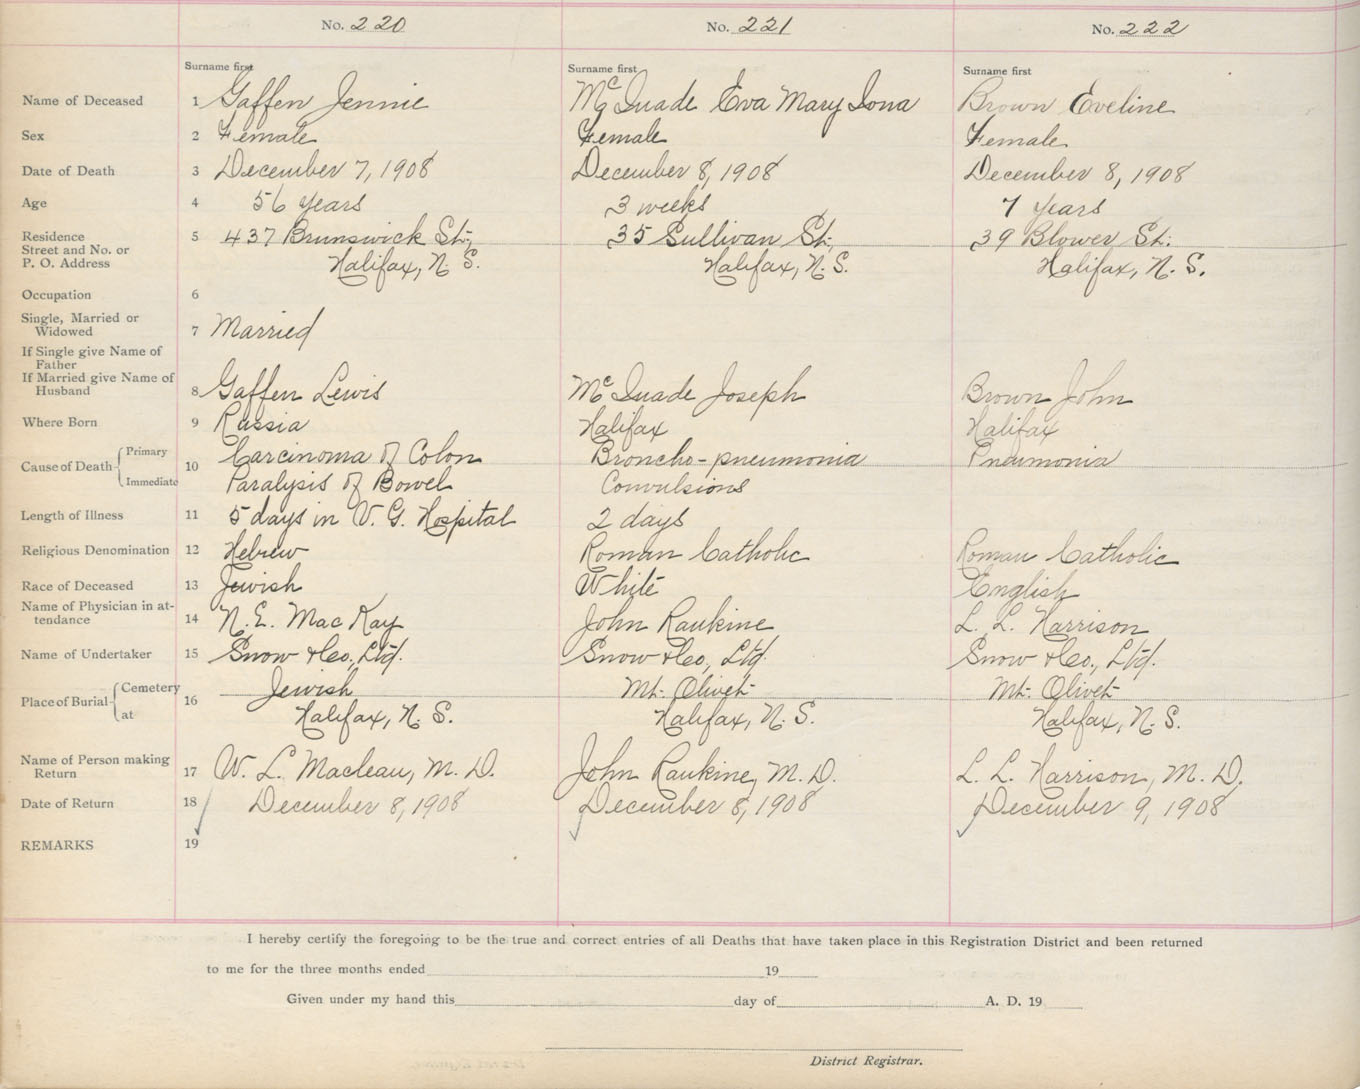 No. 220 No. 221 No. 222
Surname first Surname first Surname first
Name of Deceased 1 Gaffen Jennie McQuade Eva Mary Iona Brown Eveline
Sex 2 Female Female Female
Date of Death 3 December 7, 1908 December 8, 1908 December 8, 1908
Age 4 56 years 3 weeks 7 years
Residence 5 437 Brunswick St., 35 Sullivan St., 39 Blower St.
Street and No. or
P. O. Address Halifax, N. S. Halifax, N. S. Halifax, N. S.
Occupation 6
Single, Married or
Widowed 7 Married
If Single give Name of
Father
If Married give Name of
Husband 8 Gaffen Lewis McQuade Joseph Brown John
Where Born 9 Russia Halifax Halifax
Cause of Death 10 Primary Carcinoma of Colon Broncho-pneumonia Pneumonia
Immediate Paralysis of Bowel Convulsions
Length of Illness 11 5 days in V. G. Hospital 2 days
Religious Denomination 12 Hebrew Roman Catholic Roman Catholic
Race of Deceased 13 Jewish White English
Name of Physician in at-
tendance 14 N. E. MacKay John Rankine L. L. Harrison
Name of Undertaker 15 Snow & Co., Ltd. Snow & Co., Ltd. Snow & Co., Ltd.
Place of Burial 16 Cemetery Jewish Mt. Olivet Mt. Olivet
at Halifax, N. S. Halifax, N. S. Halifax, N. S.
Name of Person making
Return 17 W. L. Maclean, M. D. John Rankine, M. D. L. L. Harrison, M. D.
Date of Return 18 December 8, 1908 December 8, 1908 December 9, 1908
REMARKS 19
I hereby certify the foregoing to be the true and correct entries of all Deaths that have taken place in this Registration District and been returned
to me for the three months ended 19
Given under my hand this day of A. D. 19
District Registrar.